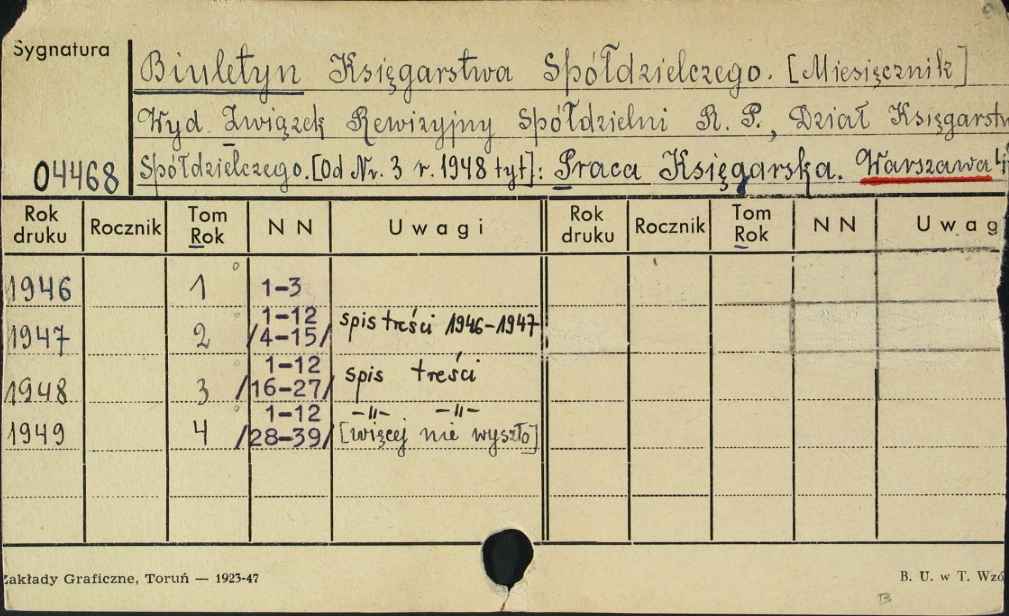 Sygnatura
Biuletyn Księgarstwa Spółdzielczego. [Miesięcznik]
Wyd. Związek Rewizyjny Spółdzielni R. P., Dział Księgarstw
04468 Spółdzielczego. [Od Nr. 3 r. 1948 tyt]: Praca Księgarska. Warszawa
Rok druku Rocznik Tom Rok NN Uwagi Rok druku Rocznik Tom Rok NN Uwag
1946 1 1-3
1947 2 1-12 /4-15/ spis treści 1946-1947
1948 3 1-12 /16-27/ spis treści
1949 4 1-12 /28-39/ -"- -"- [więcej nie wyszło]
Zakłady Graficzne, Toruń — 1923-47
B. U. w T. Wzó
B